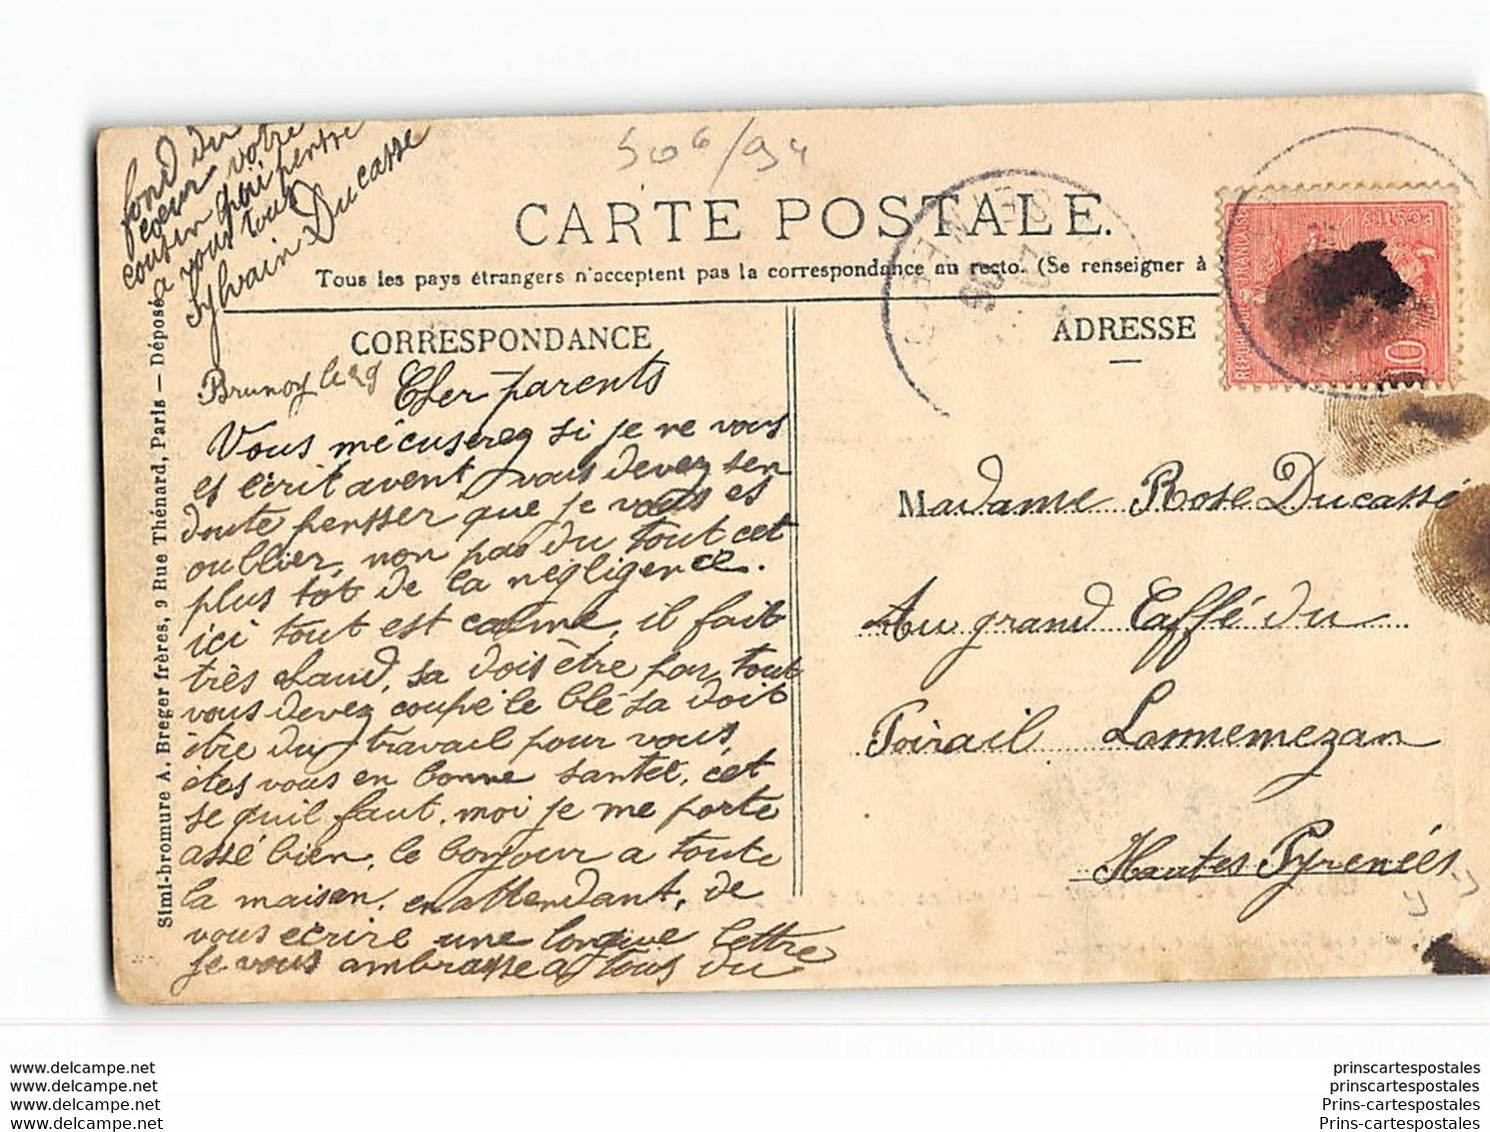 506/94
CARTE POSTALE.
Tous les pays étrangers n'acceptent pas la correspondance au recto. (Se renseigner à
CORRESPONDANCE
ADRESSE
REPUBLIQUE FRANÇAISE
POSTES
10
Brunoy le 29
Cher parents
Vous mécuserez si je ne vous
es écrit avent vous devez sen
doute pensser que je vous es
oublier, non pas du tout cet
plus tót de la négligence.
ici tout est calme, il fait
très chaud, sa dois être par tout
vous devez coupé le blé sa doit
être du travail pour vous,
etes vous en bonne santée, cet
se quil faut, moi je me porte
assé bien, le bonjour a toute
la maison, en attendant, de
vous ecrire une longue lettre
Je vous ambrasse a tous du
fond du
coeur votre
cousin qui pensse
a vous tous
Sylvain Ducasse
Madame Rose Ducassé
Au grand Caffé du
Foirail Lannemezan
Hautes Pyrenées
Simi-bromure A. Breger frères, 9 Rue Thénard, Paris — Déposé
www.delcampe.net
www.delcampe.net
www.delcampe.net
www.delcampe.net
prinscartespostales
prinscartespostales
Prins-cartespostales
Prins-cartespostales